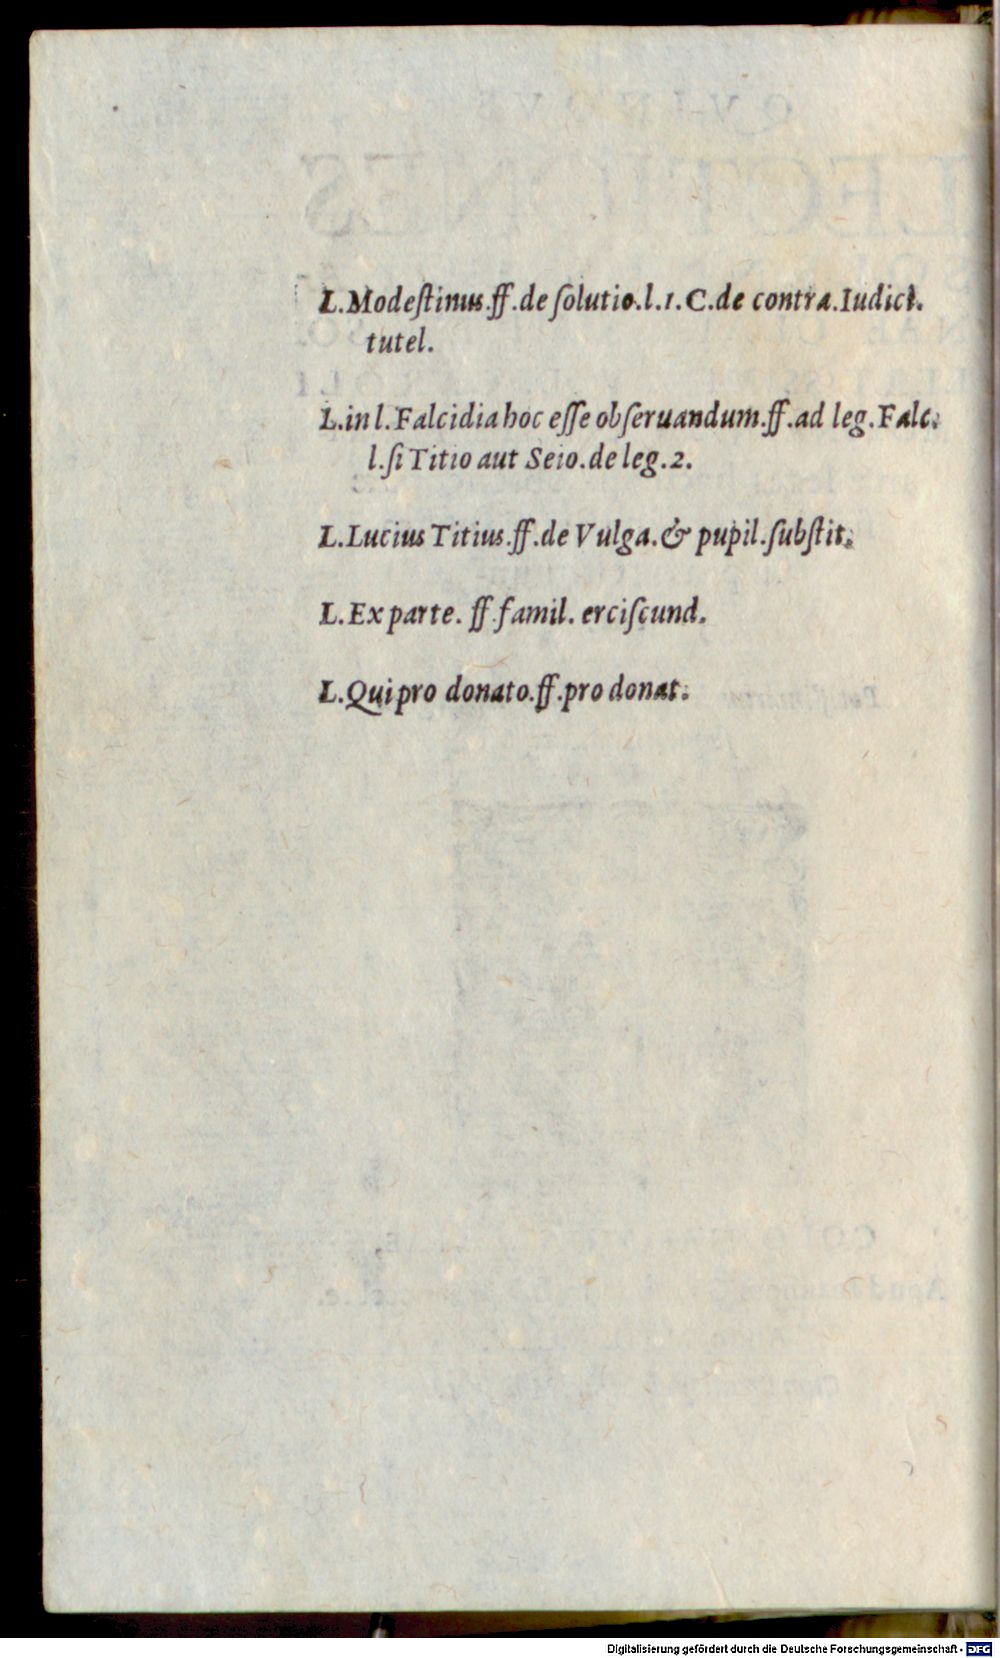 L.Modeſtinus.ff.de ſolutio.l.1.C.de contra.Iudici.
tutel.
L.in l.Falcidia hoc eſſe obſeruandum.ff.ad leg.Falc.
l.ſi Titio aut Seio.de leg.2.
L.Lucius Titius.ff.de Vulga.& pupil.ſubſtit.
L.Ex parte. ff.famil. erciſcund.
L.Qui pro donato.ff.pro donat.
Digitalisierung gefördert durch die Deutsche Forschungsgemeinschaft - DFG